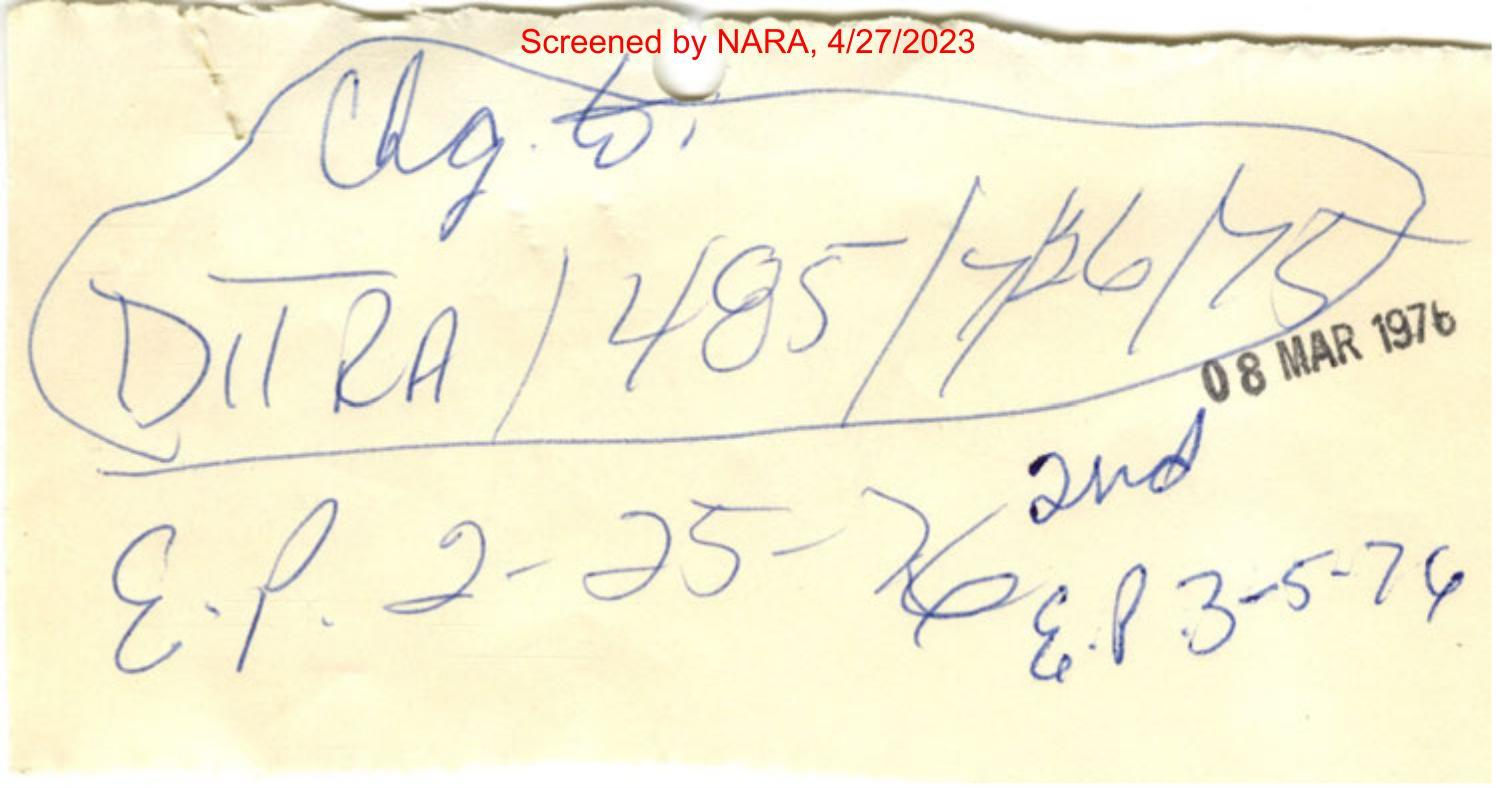 Screened by NARA, 4/27/2023
Chg. to.
DITRA / 485 / 726/75
08 MAR 1976
2nd
E.P. 2-25-76
E.P 3-5-76